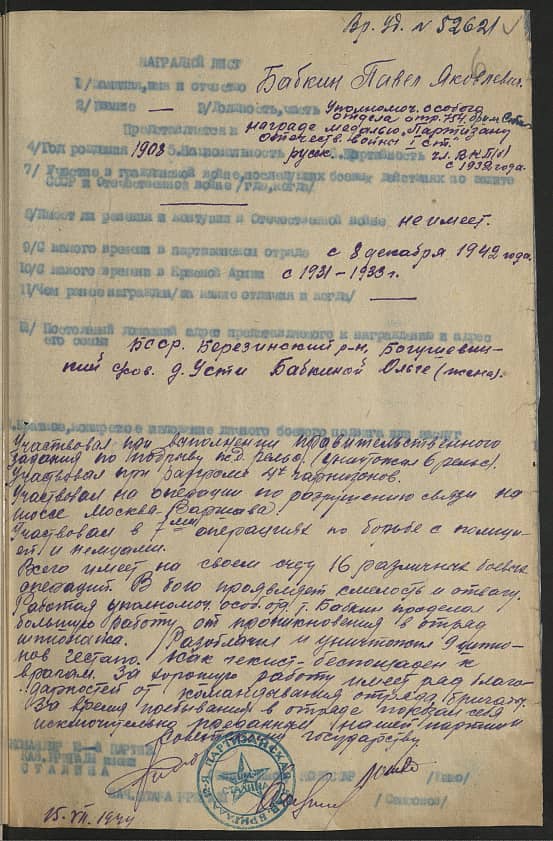 Вр. Уд. № 52621
6
НАГРАДНОЙ ЛИСТ
1/Фамилия, имя и отчество Бабкин Павел Яковлевич.
2/Звание — 3/Должность, часть Уполномоч. особого
отдела отр. 754, бриг. Ст
Представляется к награде медалью „Партизану
отечеств. войны" I ст."
4/Год рождения 1908 5. Национальность русск. Партийность чл. ВКП(б)
с 1932 года.
7/ Участие в гражданской войне, последующих боевых действиях по защите
СССР и Отечественной войне /где, когда/
8/Имеет ли ранения и контузии в Отечественной войне не имеет.
9/С какого времени в партизанском отряде с 8 декабря 1942 года.
10/С какого времени в Красной Армии с 1931-1933 г.
11/Чем ранее награжден/за какие отличия и когда/ —
12/ Постоянный домашний адрес представляемого к награждению и адрес
его семьи
БССР. Березинский р-н, Богушевич-
ский с/сов. д. Усти Бабкиной Ольге (жена).
Краткое, конкретное изложение личного боевого подвига или заслуг
Участвовал при выполнении правительственного
задания по подрыву ж.д. рельс. (уничтожил 6 рельс).
Участвовал при разгроме 4х гарнизонов.
Участвовал на операции по разрушению связи на
шоссе Москва-Варшава.
Участвовал в 7ми операциях по борьбе с полици-
ей и немцами.
Всего имеет на своем счету 16 различных боевых
операций. В бою проявляет смелость и отвагу.
Работая уполномоч. особ. отд. т. Бабкин проделал
большую работу от проникновения в отряд
шпионажа. Разоблачил и уничтожил 9 шпио-
нов гестапо. Как чекист - беспощаден к
врагам. За хорошую работу имеет ряд благо-
дарностей от командования отряда, бригады.
За время пребывания в отряде показал себя
исключительно преданным нашей партии и
советскому государству.
КОМАНДИР ПАРТИ
ЗАН. БРИГАДЫ имени
СТАЛИНА
КОМИССАР
НАЧ. ШТАБА БРИГ
СТАЛИНА
15.VII.1944